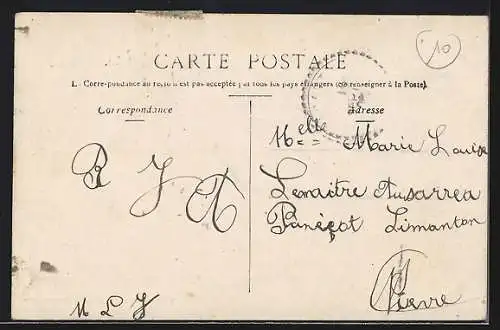 10
CARTE POSTALE
La Correspondance au recto n'est pas acceptée par tous les pays étrangers (se renseigner à la Poste).
Correspondance
Adresse
Melle Marie Louise
Lemaitre
Panéçot Limanton
Nièvre
M L Y